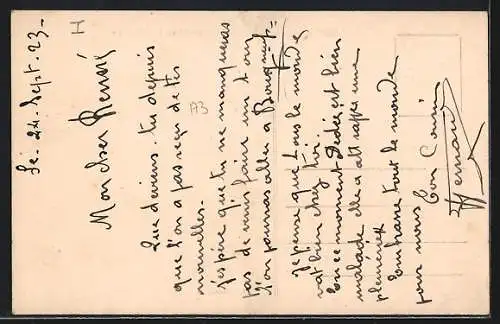 Le. 24. Sept. 23.
H
Mon cher Rémré
Que deviens-tu depuis
que l'on a pas reçu de tes
nouvelles.
73
j'espère que tu ne manqueras
pas de venir faire un tour
l'on pourras aller a
Je pense que tous le monde
vat bien chez toi.
En ce moment Dédée est bien
malade elle a attrapper une
pleurésie
Embrasse tout le monde
pour nous
Ton Cousin
Fernand